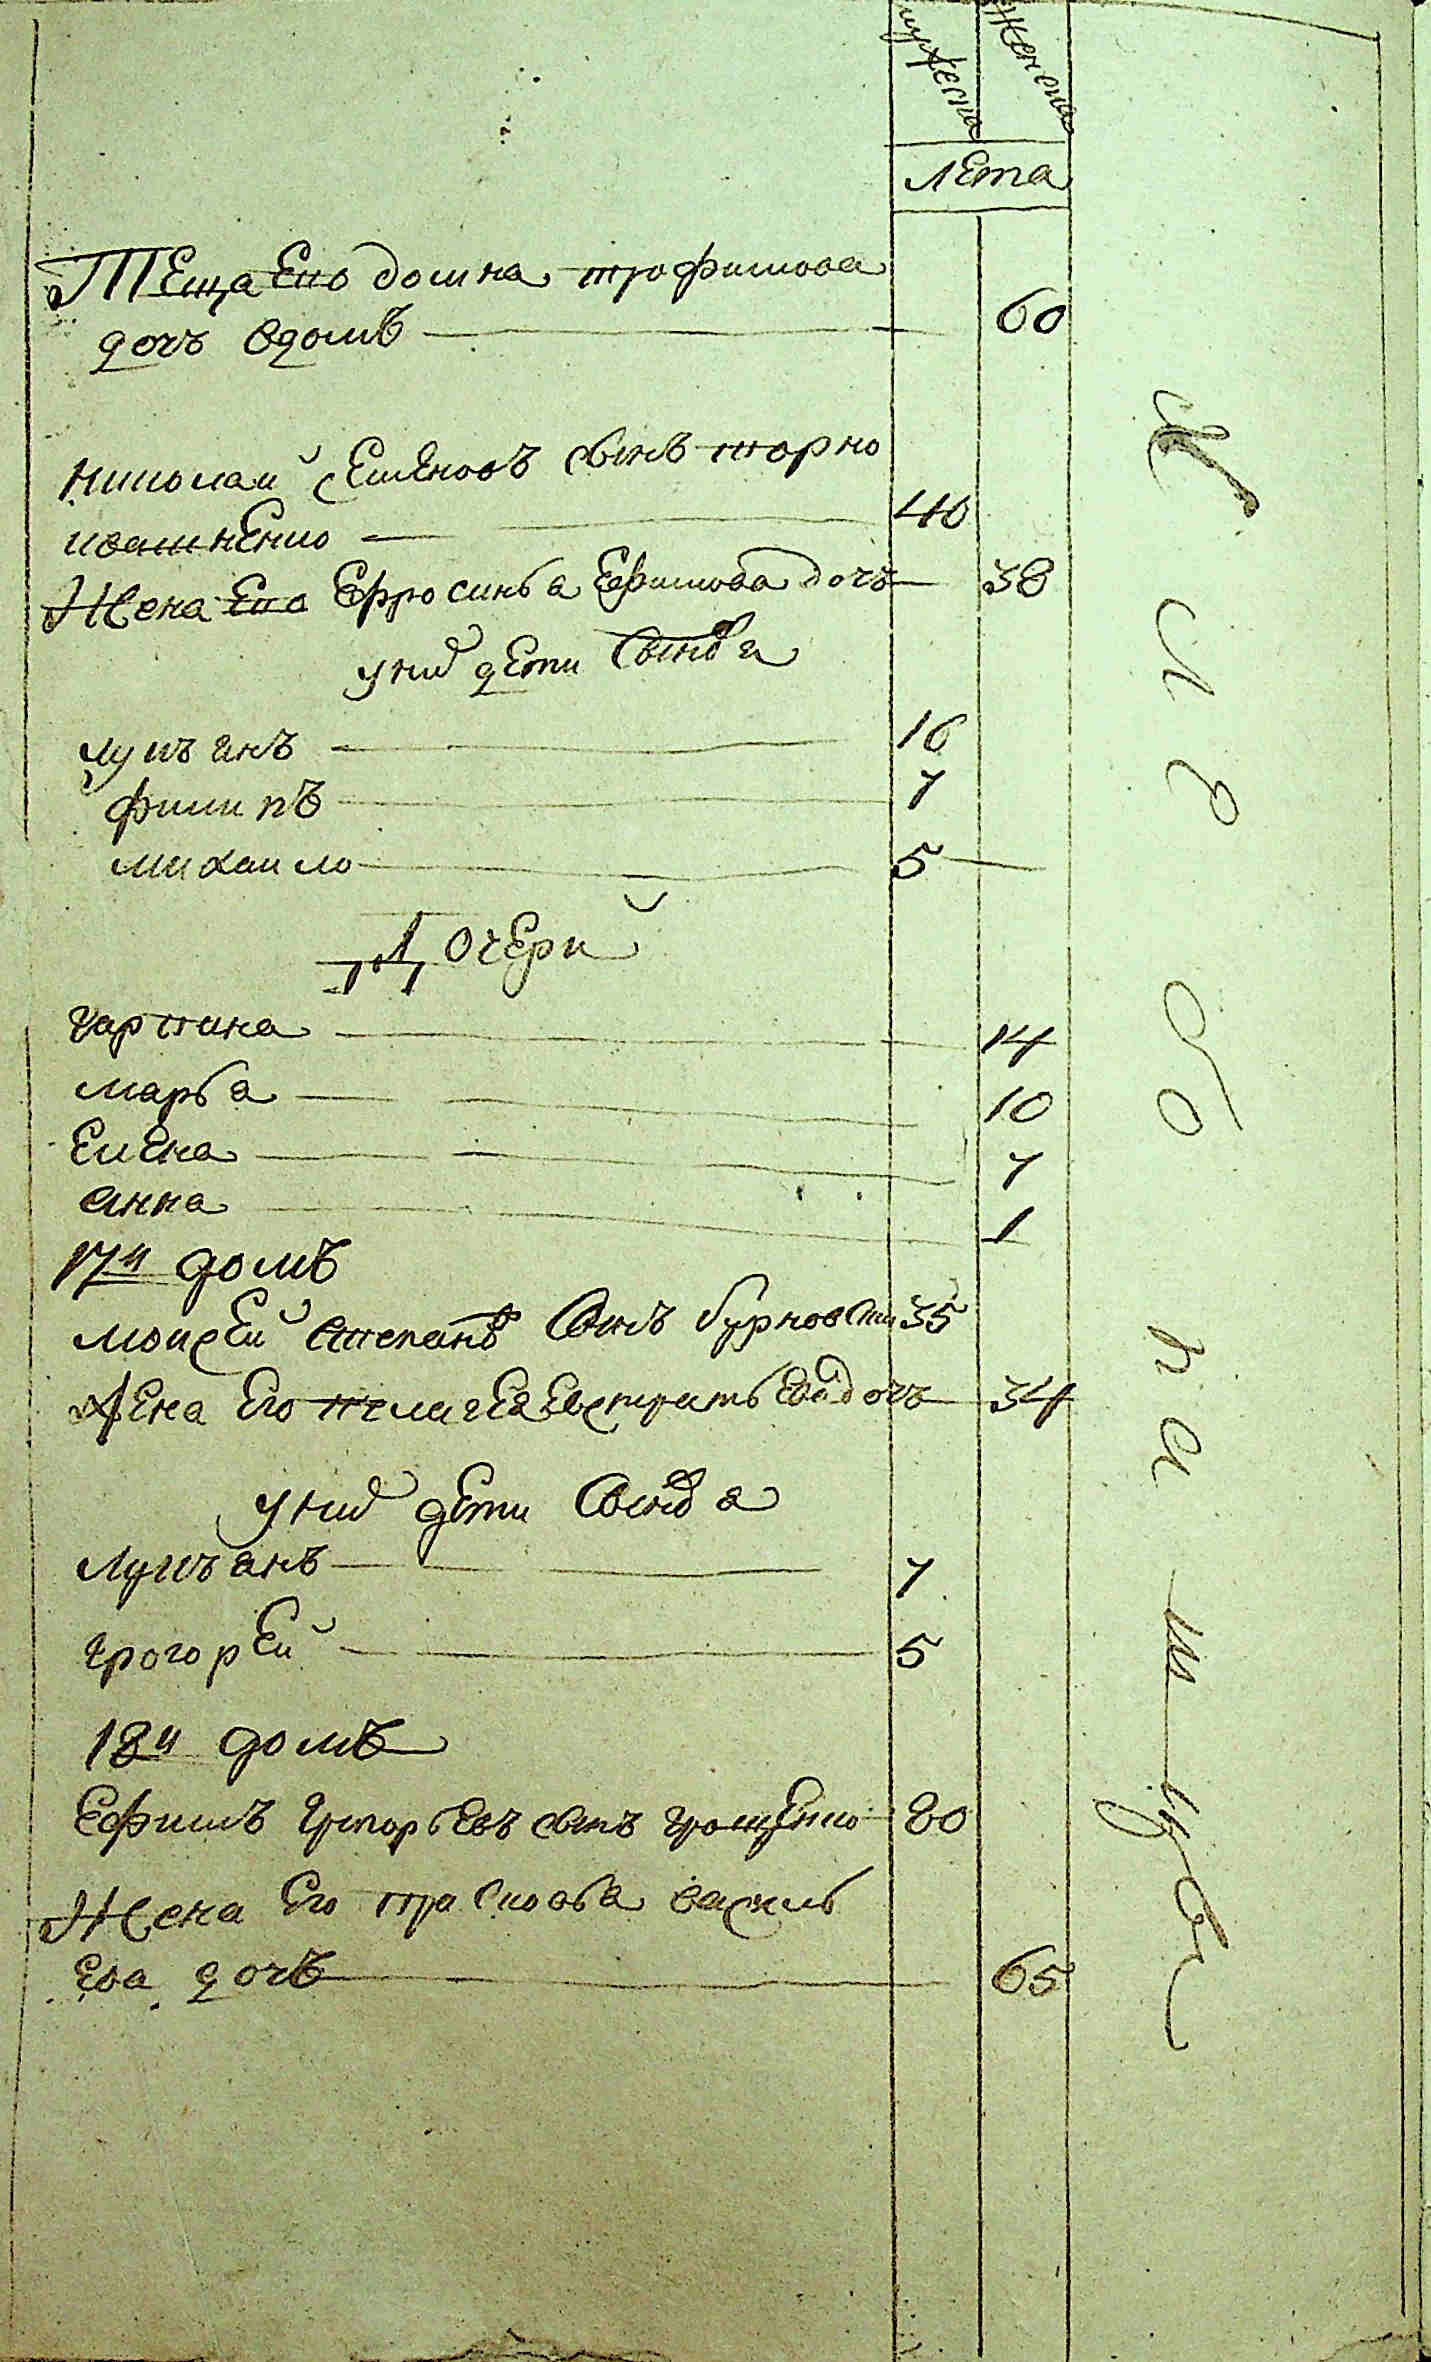 мужеска женска
лета
Теща Его домна трофимова
дочь вдовъ 60
николай семеновъ сынъ торко
ивашненко 40
Жена Его Ефросинья Ефимова дочь 38
у них дети Сыновья
лукъянъ 16
филипъ 7
михаило 5
Дочерй
гарпина 14
марья 10
Елена 7
анна 1
17й домъ
моисей степановъ Сынъ бурковски 35
жена Его пелагея Евстратьева дочь 34
у них дети Сыновья
лукъянъ 7
грогорей 5
18й домъ
Ефимъ григорьевъ сынъ грощенко 80
Жена Его просковья василь
ева дочь 65